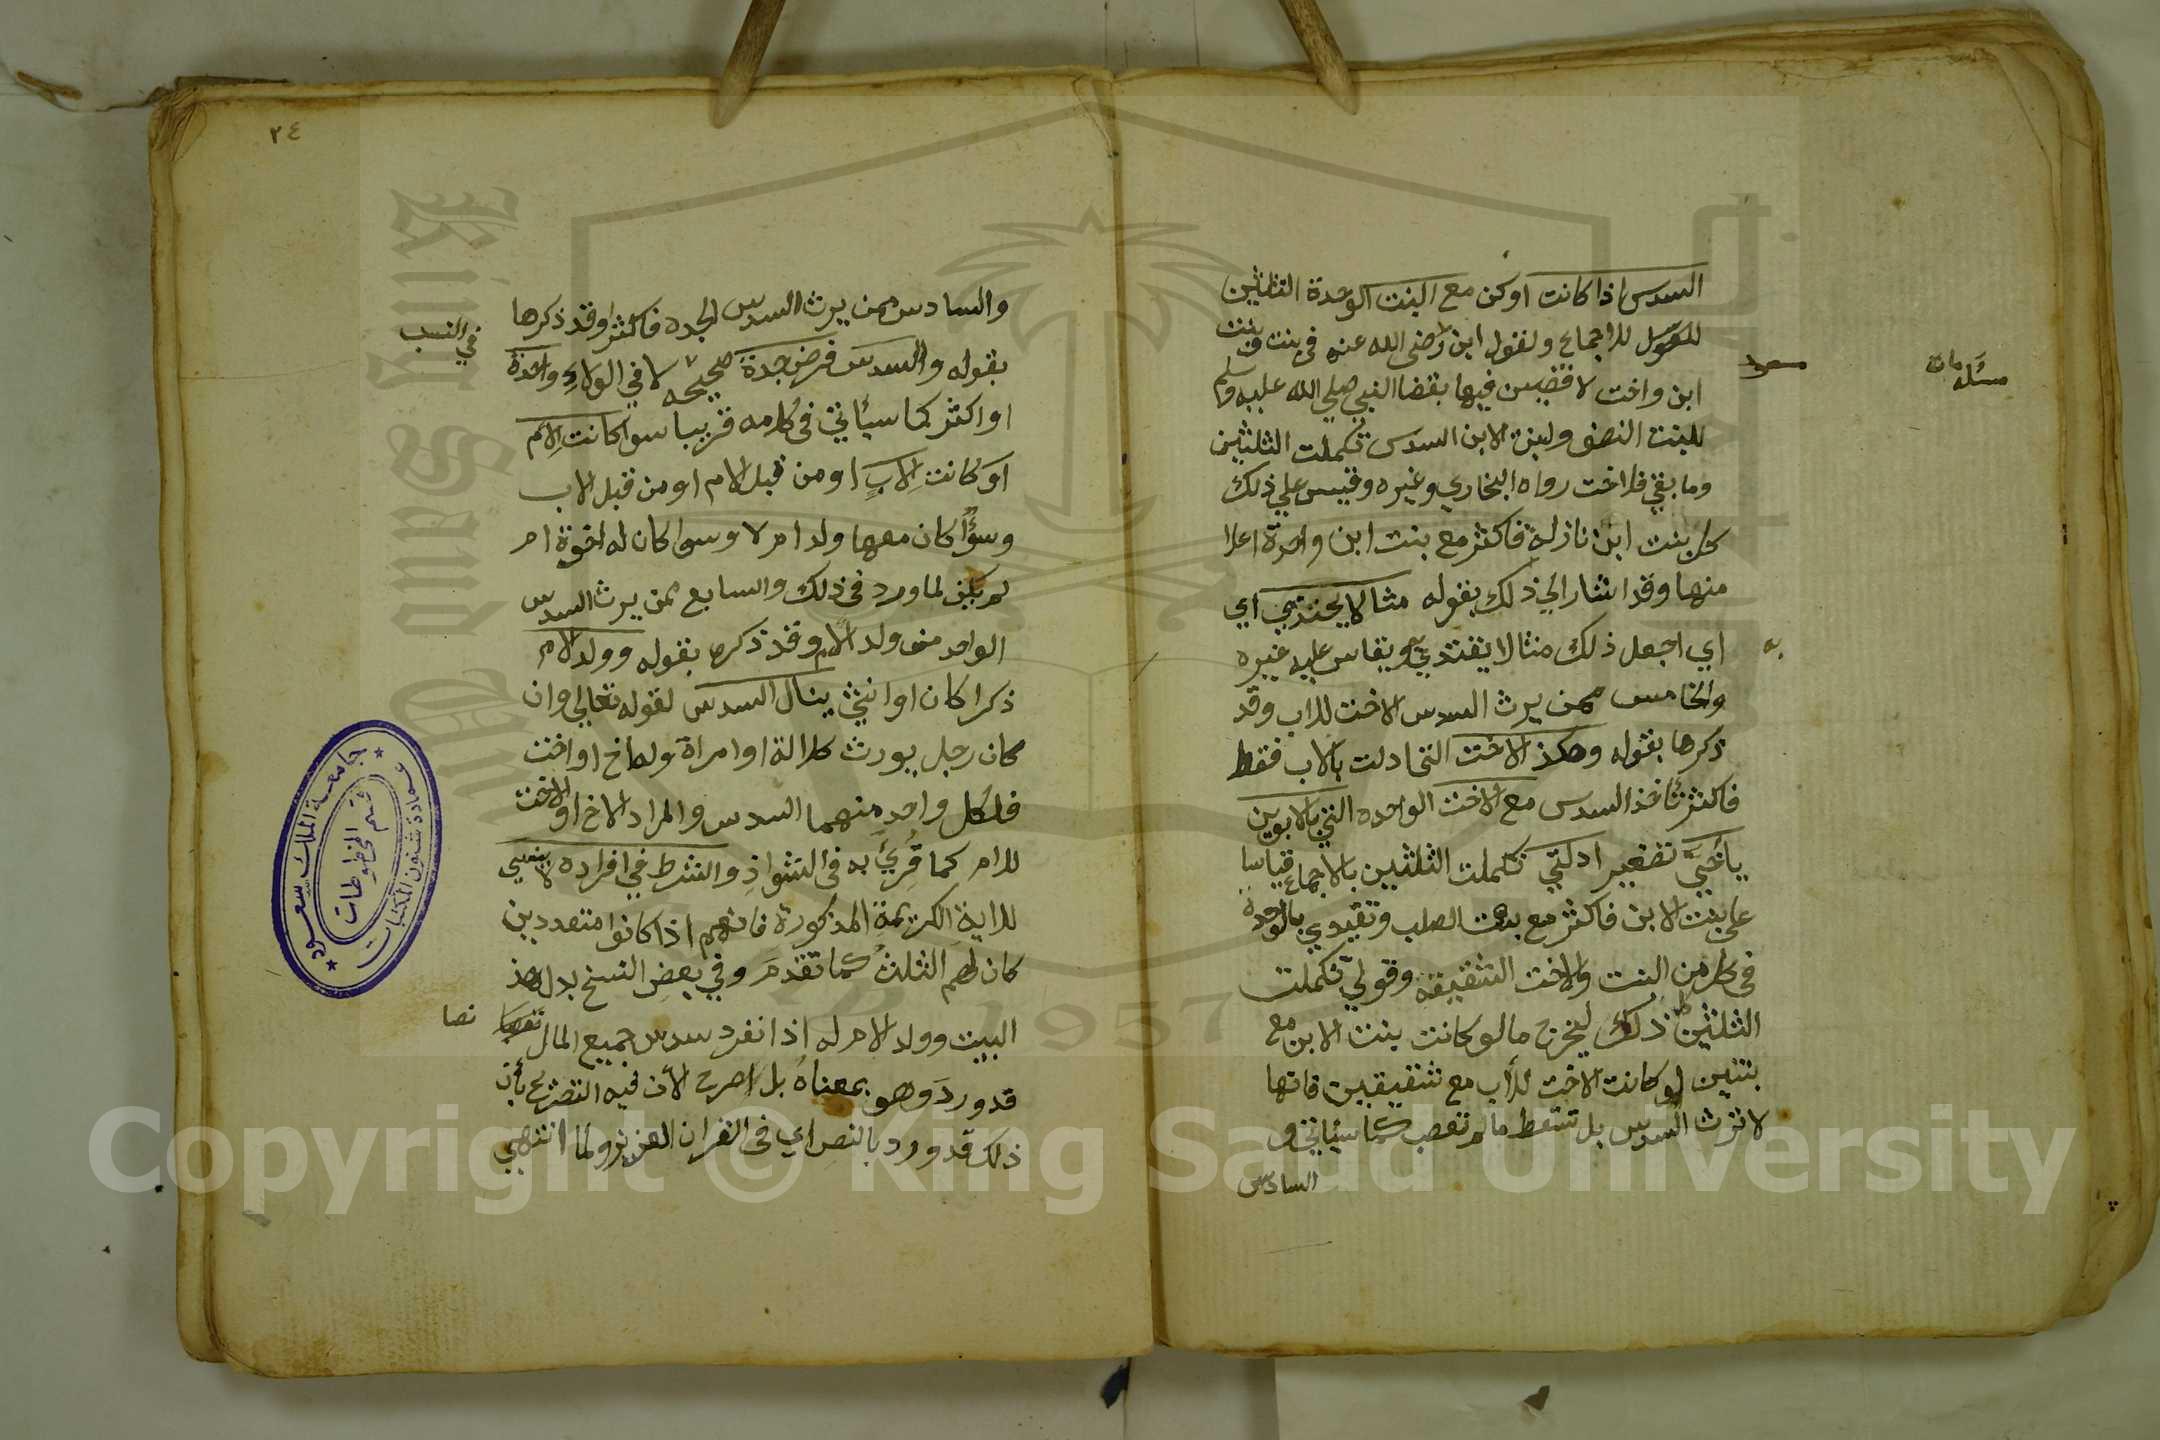 السدس اذا كانت اوكن مع البنت الوحدة الثلثين
للاجماع ولقول ابن رضى الله عنه فى بنت وبنت
مسعود
ابن واخت لاقضين فيها بقضا النبي صلي الله عليه وسلم
للبنت النصف ولبنت الابن السدس تكملت الثلثين
وما بقي فلاخت رواه البخاري وغيره وقيس علي ذلك
كل بنت ابن نازلة فاكثر مع بنت ابن واحدة اعلا
منها وقد اشار الي ذلك بقوله مثالا يحتذي اي
اي اجعل ذلك مثالا يقتدي ويقاس عليه غيره
به
والخامس ممن يرث السدس الاخت للاب وقد
ذكرها بقوله وهكذ الاخت التي ادلت بالاب فقط
فاكثر تاخذ السدس مع الاخت الواحده التي بالابوين
ياخي تصغير ادلتي تكملت الثلثين بالاجماع قياسا
على بنت الابن فاكثر مع بنت الصلب وتقييدي بالوحدة
فى كل من البنت والاخت الشقيقة وقولي تكملت
الثلثين ذلك ليخرج مالو كانت بنت الابن مع
بنتين لوكانت الاخت للاب مع شقيقين فانها
لا ترث السدس بل تسقط مالم تعصب كما سيئاتي و
السادس
٢٤
والسادس ممن يرث السدس الجده فاكثر وقد ذكرها
بقوله والسدس فرض جدة صحيحه لا في الولاء واحدة
في النسب
او اكثر كما سيئاتي فى كلامه قريبا سوا كانت لام
او كانت لاب او من قبل الام او من قبل الاب
وسوا كان معها ولد ام لا وسوا كان له اخوة ام
لم يكن لما ورد فى ذلك والسابع ممن يرث السدس
الواحد من ولد الام وقد ذكره بقوله وولد الام
ذكرا كان او انثي ينال السدس لقوله تعالي وان
كان رجل يورث كلالة او امراة وله اخ او اخت
فلكل واحد منهما السدس والمراد الاخ او الاخت
للام كما قرئ به فى الشواذ والشرط في افراده لا ينسي
للاية الكريمة المذكورة فانهم اذا كانوا متعددين
كان لهم الثلث كما تقدم وفي بعض النسخ بدل هذ
البيت وولد الام له اذا انفرد سدس جميع المال
نصا
قد ورد وهو بمعناه بل اصرح لان فيه التصريح بان
ذلك قد ورد بالنص اي فى القران العزيز ولما انتهي
جامعة الملك سعود
عمادة شئون المكتبات
قسم المخطوطات
King Saud
1957
Copyright © King Saud University